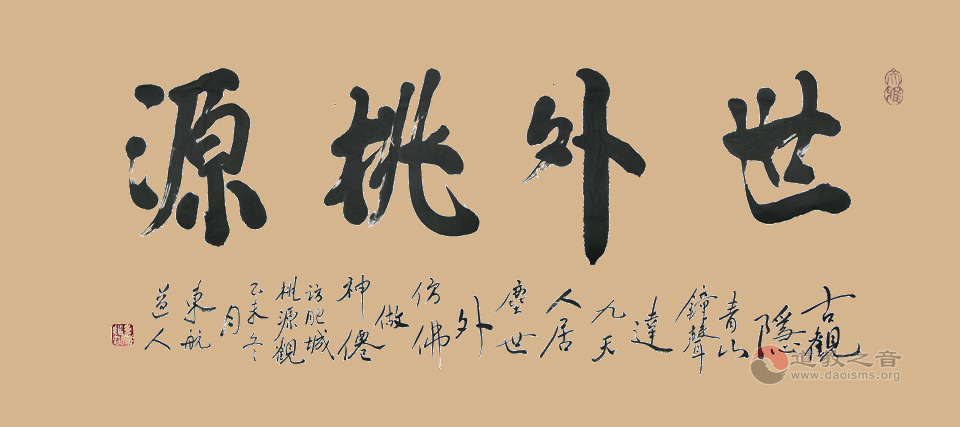 世外桃源
古觀
隱
青山
鐘聲
達
九天
人居
塵世
外
仿佛
做
神僊
訪肥城
桃源觀
乙未冬
月
東航
道人
道教之音
www.daoisms.org